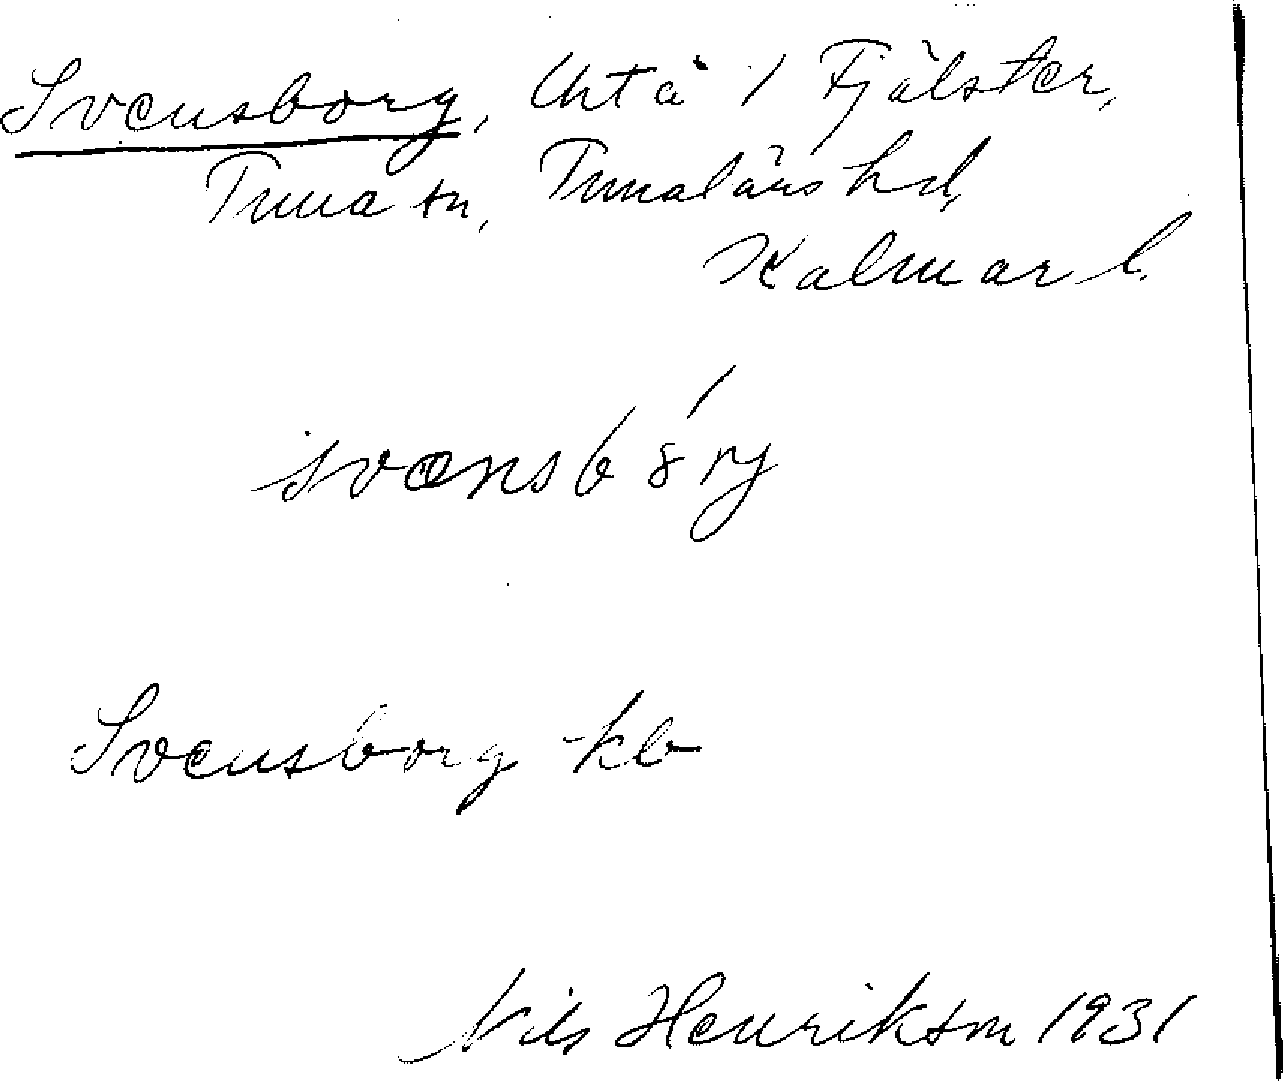 Svensborg, Urtå 1 Fjälster,
Tuna sn, Tunaläns hd,
Kalmar l.
svænsb8́rj
Svensborg kb
Nils Henrikson 1931